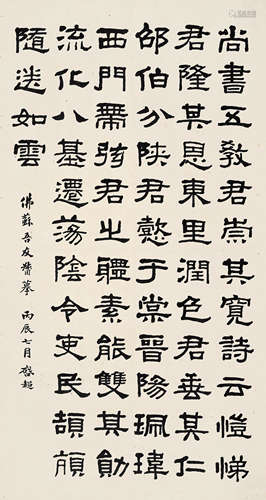 尚書五教君崇其寬詩云愷悌
君隆其恩東里潤色君垂其仁
邵伯分陝君懿于棠晉陽珮瑋
西門帶弦君之體素能雙其勛
流化八基遷蕩陰令吏民頡頏
隨送如雲
佛蘇吾友屬摹 丙辰七月 啓超